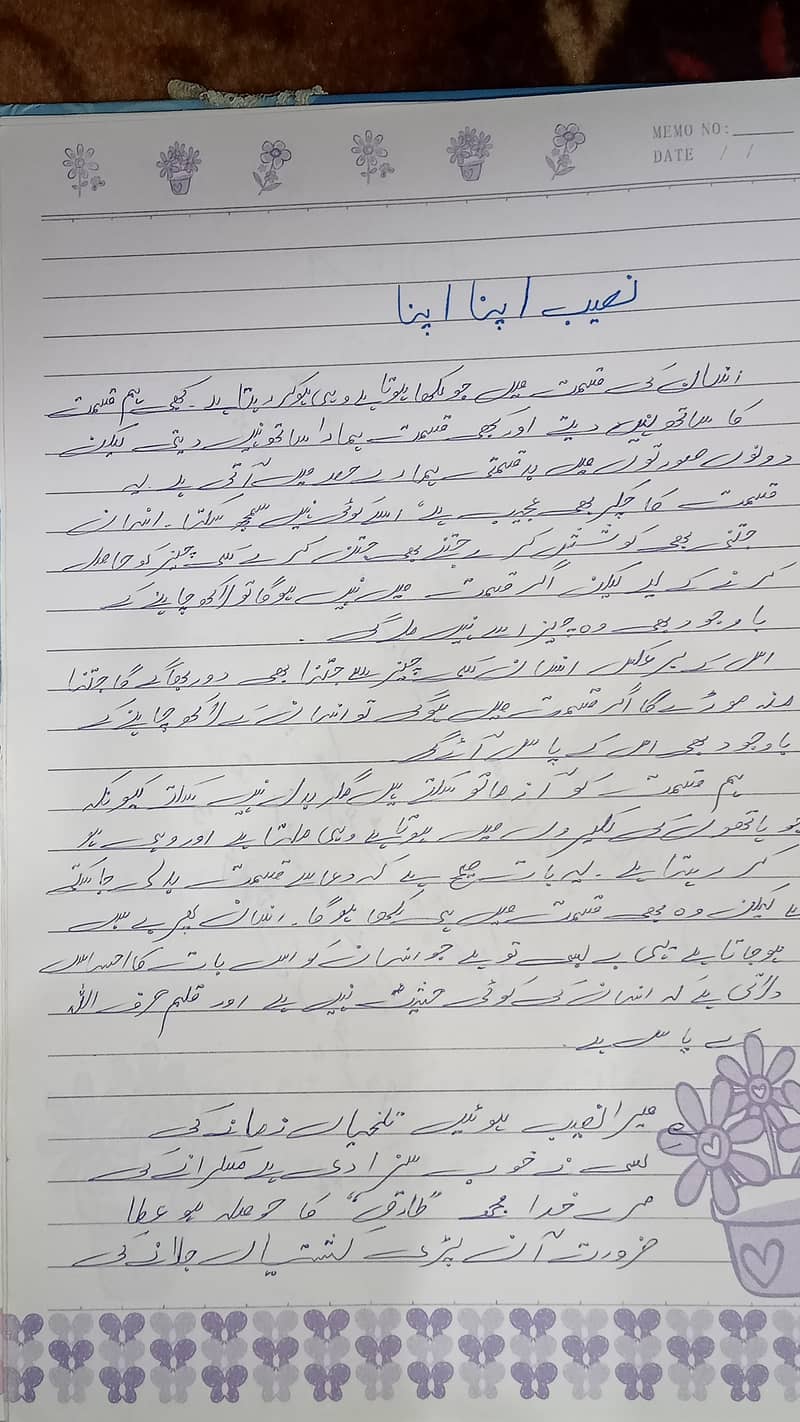 MEMO NO:
DATE / /
نصیب اپنا اپنا
انسان کی قسمت میں جو لکھا ہوتا ہے وہی ہو کر رہتا ہے۔ کبھی ہم قسمت
کا ساتھ نہیں دیتے اور کبھی قسمت ہمارا ساتھ نہیں دیتی لیکن
دونوں صورتوں میں بدقسمتی ہمارے حصہ میں آتی ہے۔ یہ
قسمت کا چکر بھی عجیب ہے، اسے کوئی نہیں سمجھ سکتا۔ انسان
جتنی بھی کوشش کرے جتنے بھی جتن کرے کسی چیز کو حاصل
کرنے کے لیے لیکن اگر قسمت میں نہیں ہوگا تو لاکھ چاہنے کے
باوجود بھی وہ چیز اسے نہیں ملے گی۔
اس کے برعکس انسان کسی چیز سے جتنا بھی دور بھاگے گا جتنا
منہ موڑے گا اگر قسمت میں ہوگی تو انسان کے لاکھ چاہنے کے
باوجود بھی اس کے پاس آئے گی
ہم قسمت کو آزما تو سکتے ہیں مگر بدل نہیں سکتے کیونکہ
جو ہاتھوں کی لکیروں میں ہوتا ہے وہی ملتا ہے اور وہی ہو
کر رہتا ہے۔ یہ بات صحیح ہے کہ دعا سے قسمت بدلی جا سکتی
ہے لیکن وہ بھی قسمت میں ہی لکھا ہوگا۔ انسان پھر بے بس
ہو جاتا ہے یہی بے بسی تو ہے جو انسان کو اس بات کا احساس
دلاتی ہے کہ انسان کی کوئی حیثیت نہیں ہے اور قلم صرف اللہ
کے پاس ہے۔
میرا نصیب ہوئیں تلخیاں زمانے کی
کسی نے خوب سزا دی ہے مسکرانے کی
میرے خدا مجھے "طارق" کا حوصلہ ہو عطا
ضرورت آن پڑی کشتیاں جلانے کی